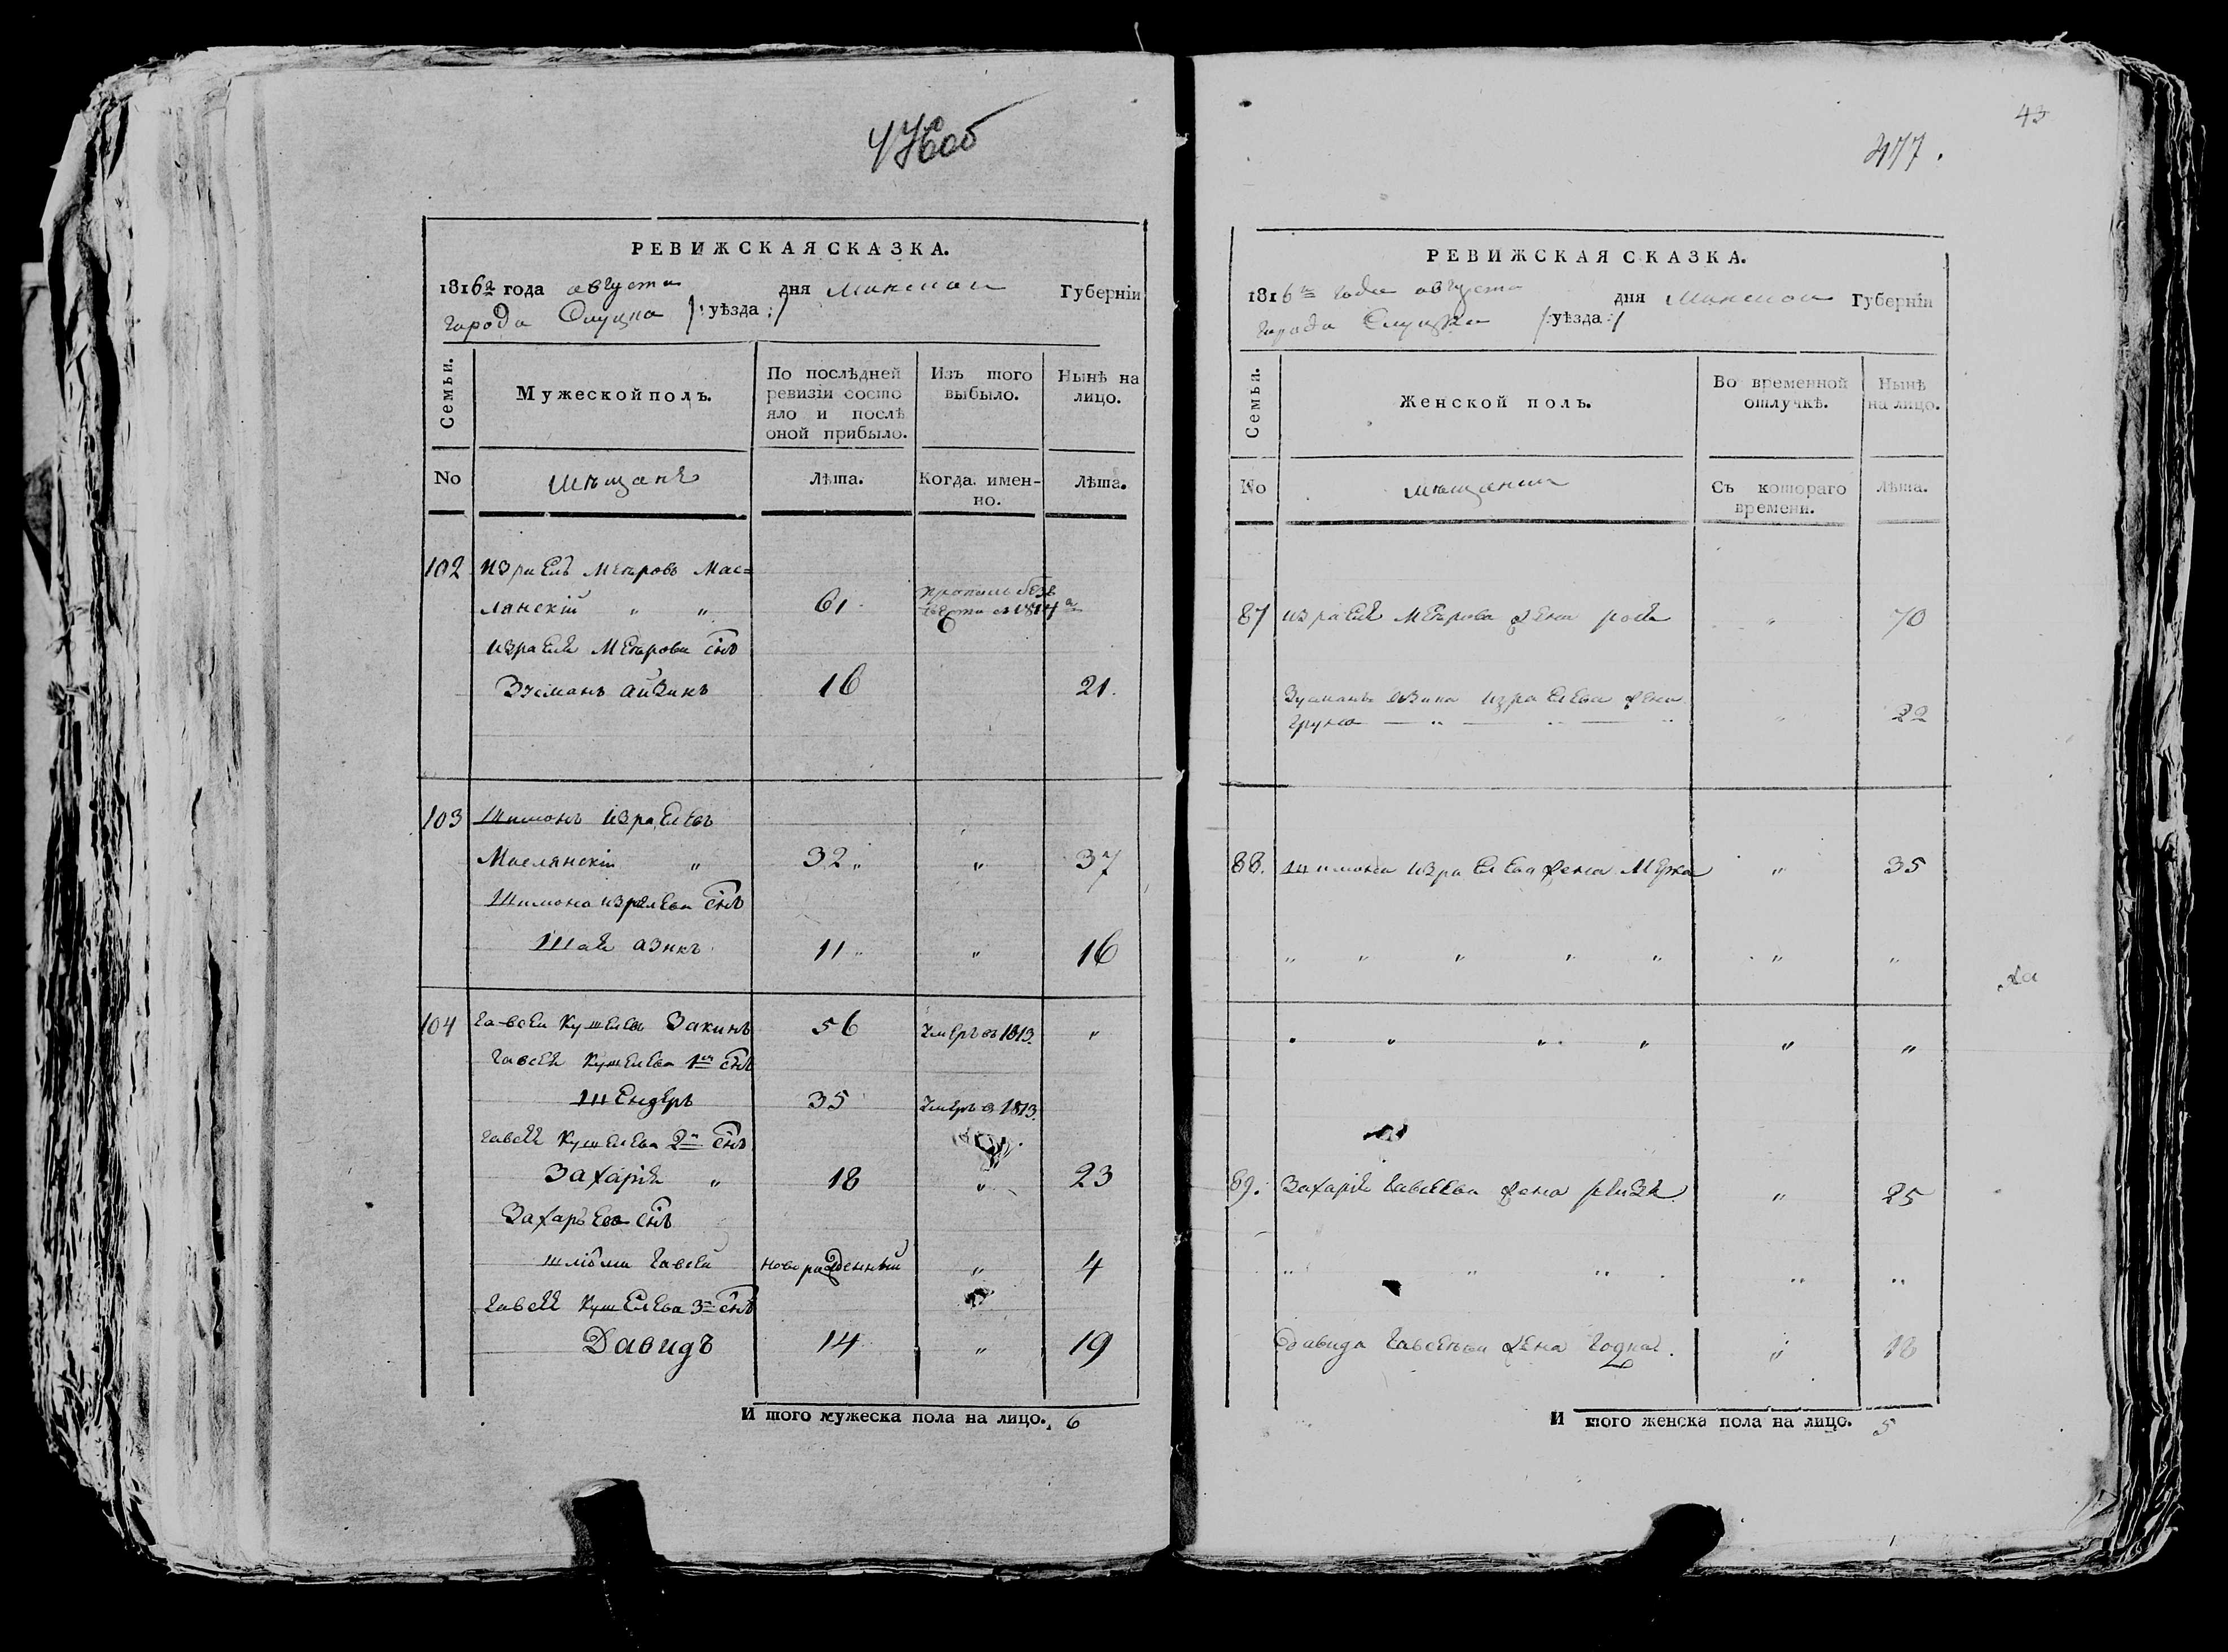 476об
РЕВИЖСКАЯ СКАЗКА.
1816го года августа дня Минской Губерніи
города Слуцка /:уѣзда:/
Семьи.
Мужеской полъ.
По послѣдней ревизіи состояло и послѣ оной прибыло.
Изъ того выбыло.
Нынѣ на лицо.
No
мѣщане
Лѣта.
Когда имен-но.
Лѣта.
102 Израель Мееровъ Мас=
лянскій " " 61 пропалъ безъ вести въ 1814га
Израеля Меерова сынъ
Зусманъ Айзикъ 16 21.
103 Шимонъ Израелевъ
Маслянскій " 32 " " 37
Шимона Израелева сынъ
Шая Азикъ 11 " " 16
104 Евсей Кушелевъ Закинъ 56 Умеръ въ 1813. "
Евсея Кушелева 1й сынъ
Шендеръ 35 Умеръ в 1813.
Евсея Кушелева 2й сынъ
Захарія " 18 " 23
Захарьева сынъ
Шліома Евсей новорожденный " 4
Евсея Кушелева 3й сынъ
Давидъ 14 " 19
И того мужеска пола на лицо. 6
43
477.
РЕВИЖСКАЯ СКАЗКА.
1816го года августа дня Минской Губерніи
города Слуцка /:уѣзда:/
Семьи.
Женской полъ.
Во временной отлучкѣ.
Нынѣ на лицо.
No
мѣщанки
Съ котораго времени.
Лѣта.
87 Израеля Меерова жена " 70
Зусмана Айзика Израелева жена
Груня " 22
88. Шимона Израелева жена Мерка " 35
" " " " " " "
" " " " " "
89. Захарія Евсеева жена " 25
" " " " "
Давида Евсеева жена " 18
И того женска пола на лицо. 5